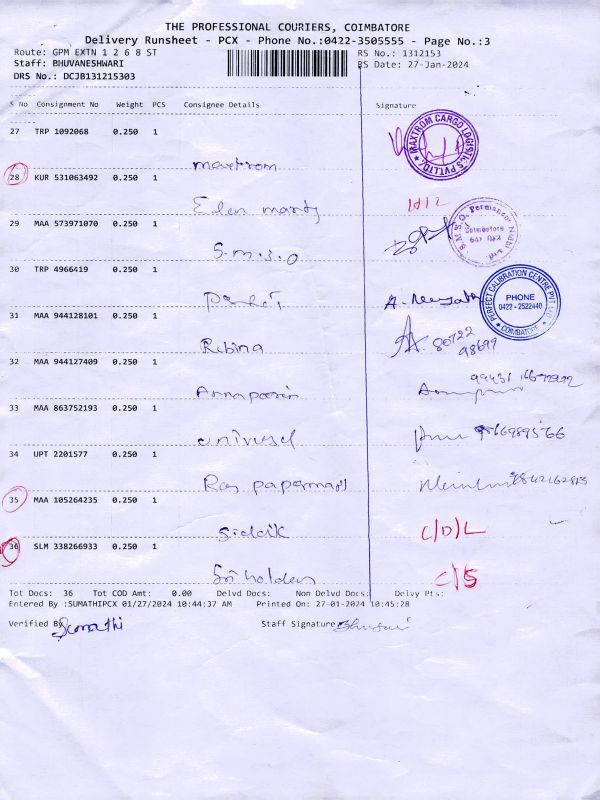 THE PROFESSIONAL COURIERS, COIMBATORE
Delivery Runsheet - PCX - Phone No.:0422-3505555 - Page No.:3
Route: GPM EXTN 1 2 6 8 ST RS No.: 1312153
Staff: BHUVANESHWARI RS Date: 27-Jan-2024
DRS No.: DCJB131215303
S No Consignment No Weight PCS Consignee Details Signature
27 TRP 1092068 0.250 1
maxtrom MAXTROM CARGO LOGISTICS PVT.LTD.
28 KUR 531063492 0.250 1
Eden
29 MAA 573971070 0.250 1
S.M.S.O S.M.S.O. Permanent Nidhi Ltd. Coimbatore
30 TRP 4966419 0.250 1
PERFECT CALIBRATION CENTRE PVT LTD PHONE 0422 - 2522440 COIMBATORE
31 MAA 944128101 0.250 1
Rubina 80722 98699
32 MAA 944127409 0.250 1
Annapoorn
33 MAA 863752193 0.250 1
34 UPT 2201577 0.250 1
Raj papermart
35 MAA 105264235 0.250 1
Siddik C/D/L
36 SLM 338266933 0.250 1
Sri holders C/S
Tot Docs: 36 Tot COD Amt: 0.00 Delvd Docs: Non Delvd Docs: Delvy Pts:
Entered By :SUMATHIPCX 01/27/2024 10:44:37 AM Printed On: 27-01-2024 10:45:28
Verified By Sumathi Staff Signature